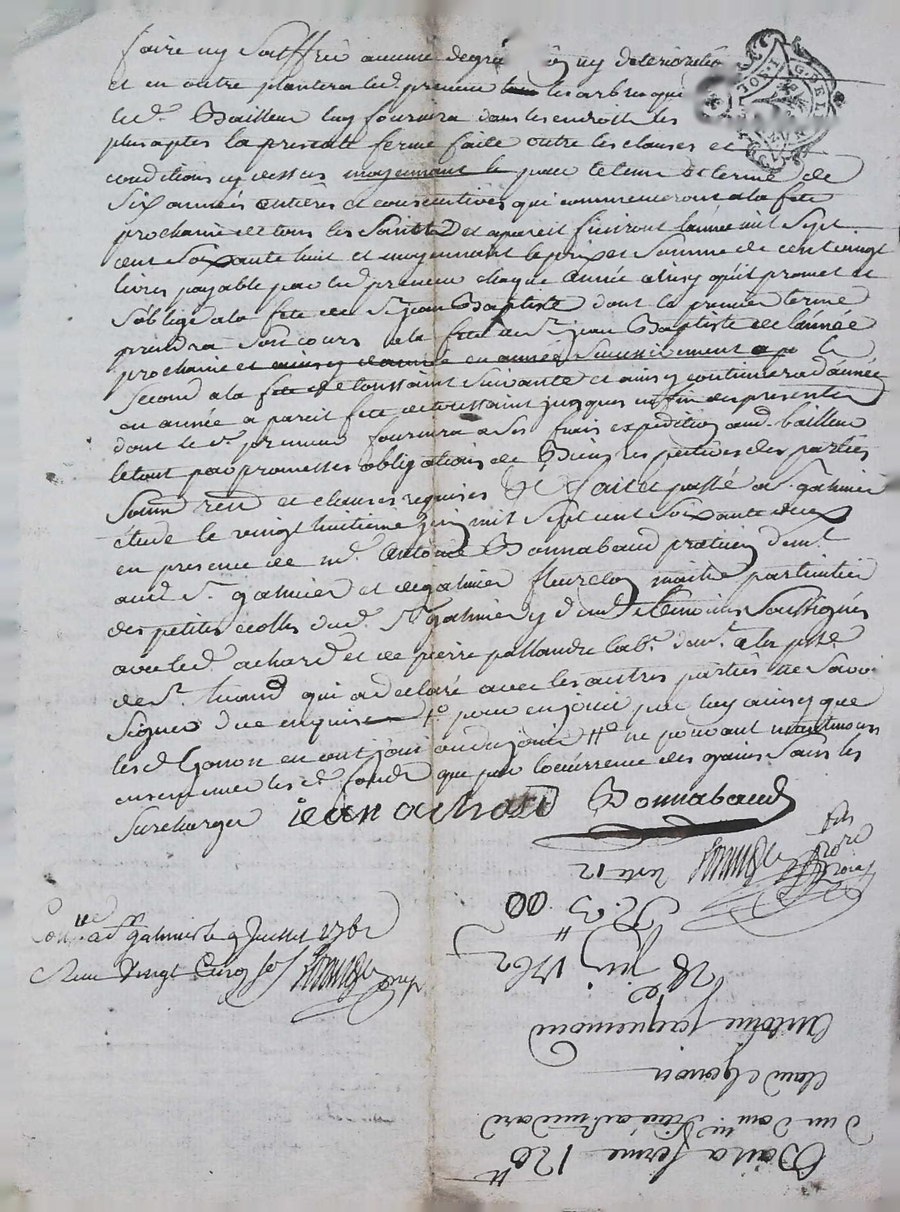 faire ny souffrir aucune degra ny deterioration
et en outre plantera led. preneur les arbres que
led. Bailleur luy fournira dans les endroits les
plus aptes la presente ferme faite outre les clauses et
conditions cy dessus moyennant le pour le tems et terme de
Six années entières et consecutives qui commenceront a la fete
prochaine de tous les Saints et a pareil finiront lannée mil Sept
cent Soixante huit et moyennant le prix et Somme de cent vingt
livres payable par led preneur chaque année ainsy qu'il promet et
s'oblige a la fete de St. jean Baptiste dont le premier terme
prendra son cours a la fete de St. jean Baptiste de l'année
prochaine et ainsy d'année en année le
Second a la fete de toussaint Suivante et ainsy continuera d'année
en année a pareil fete de toussaint jusques en fin des presentes
dont le d. preneur fournira a ses frais expedition aud. bailleur
le tout par promesses obligations de Biens respectives des parties
Soum. ren. et clauses requises et fait et passé a St. galmier
étude le vingt huitieme juin mil Sept cent Soixante deux
en presence de me. Antoine Bonnabaud praticien demt.
aud St. galmier et de galmier fleur maitre particulier
des petites écolles dud. St. galmier y demt. temoins Soussignés
avec led achard et de pierre pallandre lab. demt. a les
de St. qui a declaré avec les autres parties ne Savoir
Signer de ce enquis pour en jouir par luy ainsy que
les d. Gonon en ont joui ou du jouir ne pouvant neantmoins
ensemencer les d. fonds que par locurrence des grains Sans les
Surcharger jean achard Bonnabaud
Con. a St. galmier le 9 Juillet 1762
Reçu Vingt Cinq Sols
Reste 12
R. 3 " 00
28e juin 1762
Antoine jaquemond
claude Gonon
d'un dom.
Bail a ferme 120